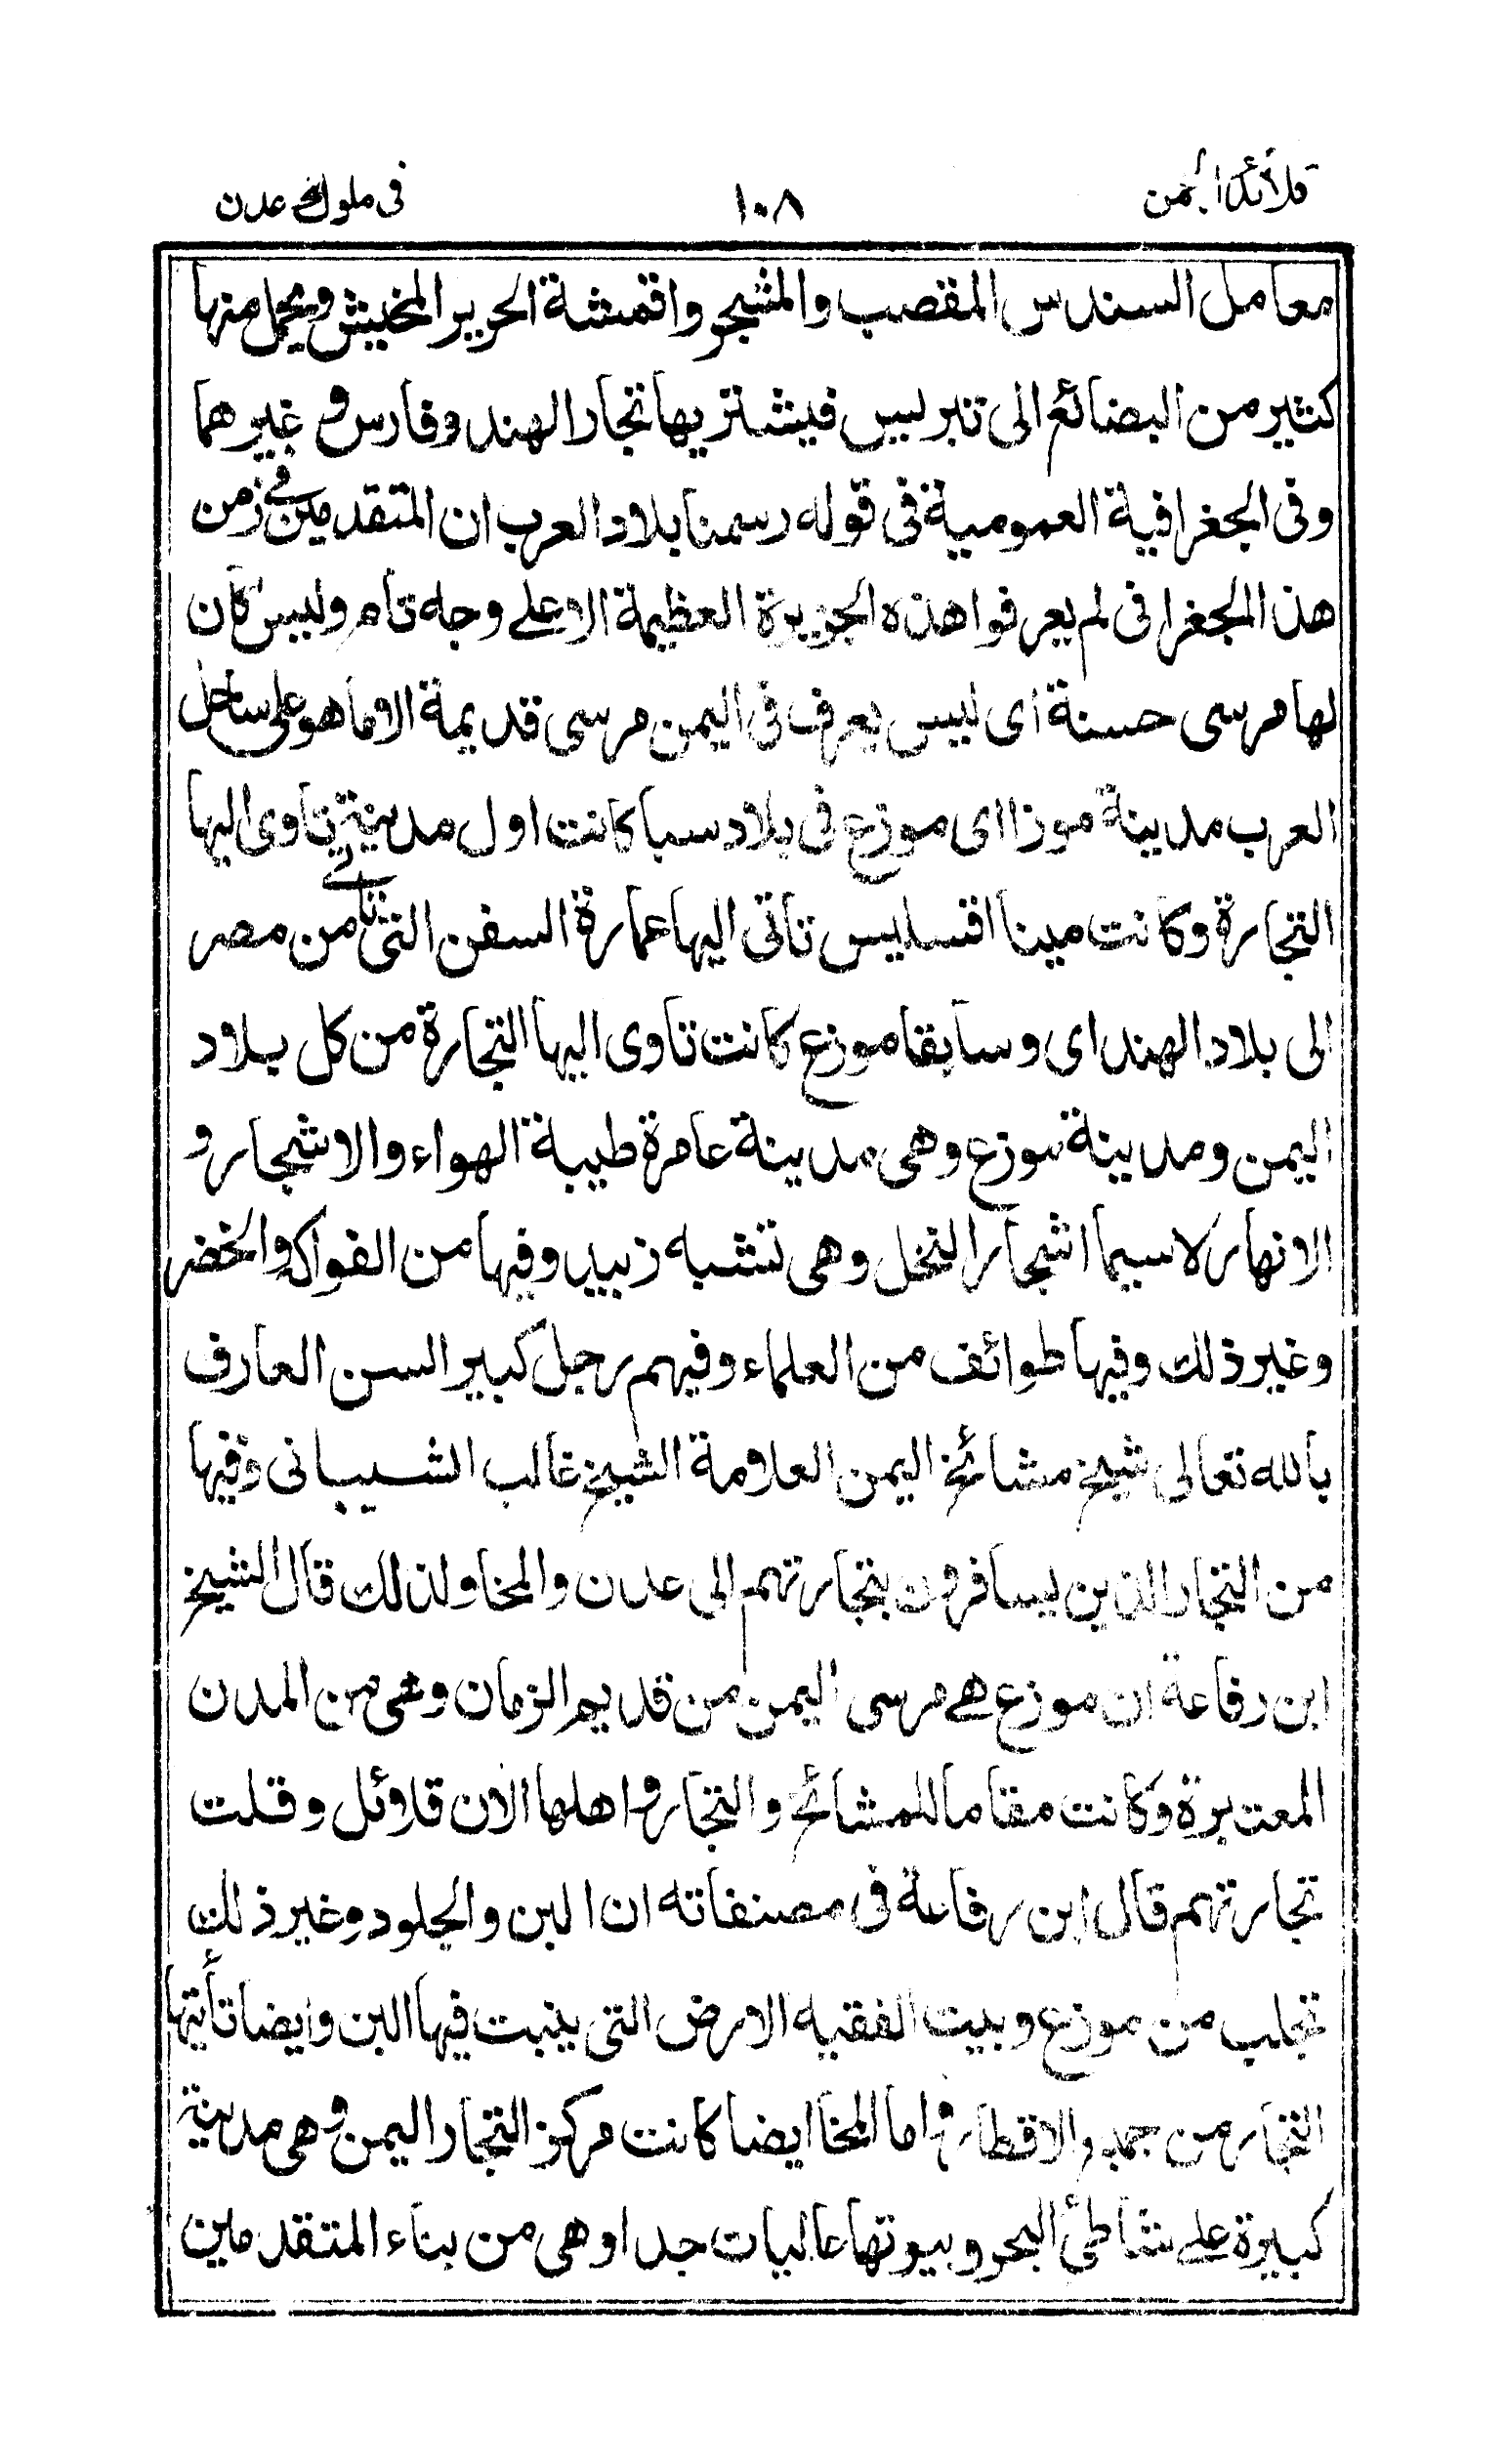 قلائد الجمن ١٠٨ فی ملوك عدن
معامل السندس المقصب والمشجر واقمشة الحرير المخيش ويحمل منها
كثير من البضائع الى تبريس فيشتريها تجار الهند وفارس وغيرهما
وفى الجغرافية العمومية فى قوله رسمنا بلاد العرب ان المتقدمين فے زمن
هذا الجغرافى لم يعرفوا هذه الجزيرة العظيمة الا علے وجه تام وليس كان
لها مرسى حسنة اى ليس يعرف فى اليمن مرسى قديمة الا ما هو على ساحل
العرب مدينة موزا اى موزع فى بلاد سبا كانت اول مدينة تاوى اليها
التجارة وكانت مينا افسليس تاتى اليها عمارة السفن التى تاتے من مصر
الى بلاد الهند اى وسابقا موزع كانت تاوى اليها التجارة من كل بلاد
اليمن ومدينة موزع وهى مدينة عامرة طيبة الهواء والاشجار و
الانهار لاسيما اشجار النخل وهى تشبه زبيد وفيها من الفواكه والخضر
وغير ذلك وفيها طوائف من العلماء وفيهم رجل كبير السن العارف
بالله تعالى شيخ مشائخ اليمن العلامة الشيخ غالب الشيبانى وفيها
من التجار الذين يسافرون بتجارتهم الى عدن والمخا ولذلك قال الشيخ
ابن رفاعة ان موزع هے مرسى اليمن من قديم الزمان وهى من المدن
المعتبرة وكانت مقاما للمشائخ والتجار واهلها الان قلائل وقلت
تجارتهم قال ابن رفاعة فى مصنفاته ان البن والجلود وغير ذلك
تجلب من موزع وبيت الفقيه الارض التى ينبت فيها البن وايضا تأتيها
التجار من جميع الاقطار واما المخا ايضا كانت مركز التجار اليمن وهى مدينة
كبيرة علے شاطئ البحر وبيوتها عاليات جدا وهى من بناء المتقدمين